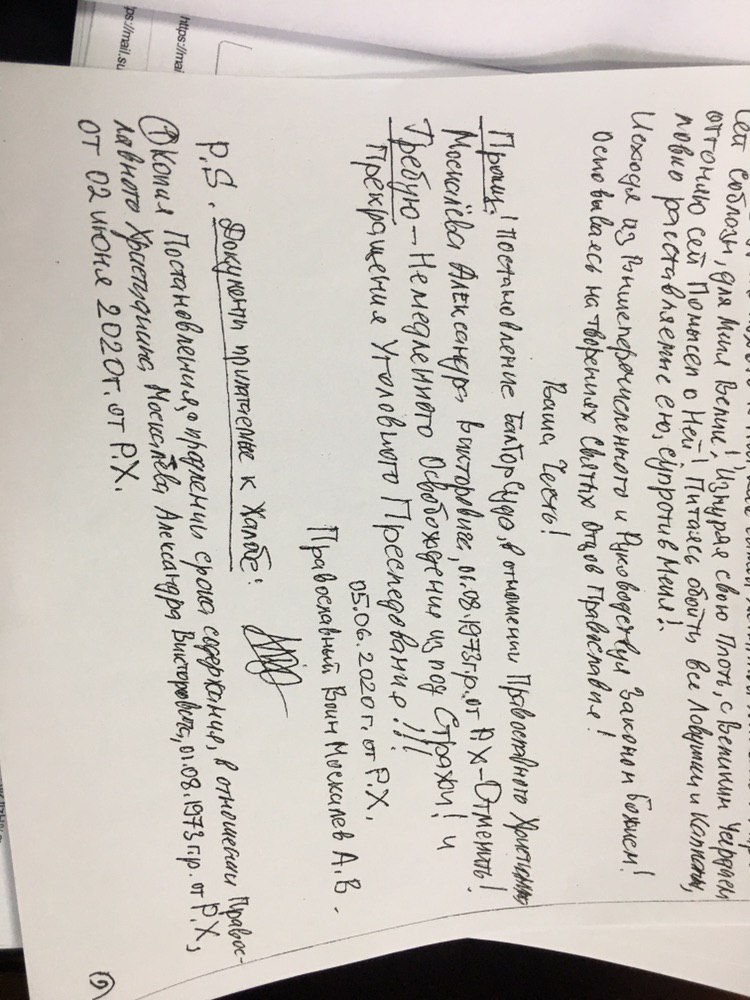 сей соблазн, для меня велик! Изнуряя свою Плоть, с Великим Усердием
отгоняю сей Помысел о Ней! Пытаясь обойти все Ловушки и Капканы,
ловко расставляемые ею, супротив Меня!
Исходя из Вышеперечисленного и Руководствуя Законом Божием!
Основываясь на творениях Святых Отцов Православия!
Ваша Честь!
Прошу! Постановление Судо, в отношении Православного Христианина
Москалёва Александра Викторовича, 01.08.1973г.р. от РХ - Отменить!
Требую - Немедленного Освобождения из под Стражи! и
Прекращения Уголовного Преследования!!!
05.06.2020г. от Р.Х.
Православный Воин Москалев А.В.
P.S. Документы прилагаемые к Жалобе:
① Копия Постановления, о продлении срока содержания, в отношении Правос-
лавного Христианина, Москалёва Александра Викторовича, 01.08.1973г.р. от Р.Х,
от 02 июня 2020г. от Р.Х.
https://mai
ps://mail.su